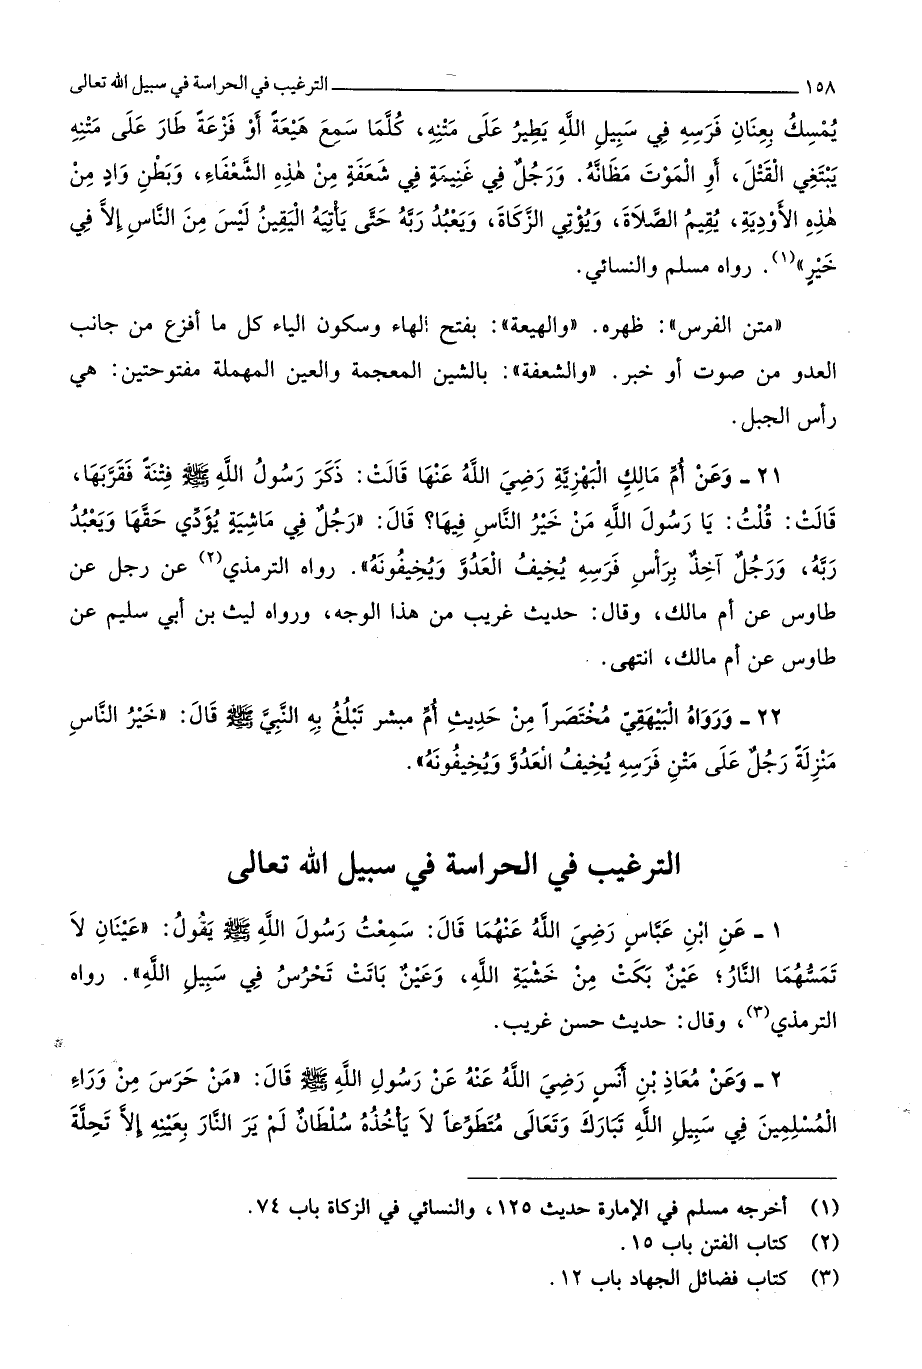 ١٥٨ ــــــــــــــــــــــــــــــــ الترغيب في الحراسة في سبيل الله تعالى
يُمْسِكُ بِعِنَانِ فَرَسِهِ فِي سَبِيلِ اللَّهِ يَطِيرُ عَلَى مَتْنِهِ، كُلَّمَا سَمِعَ هَيْعَةً أَوْ فَزْعَةً طَارَ عَلَى مَتْنِهِ
يَبْتَغِي الْقَتْلَ، أَوِ الْمَوْتَ مَظَانَّهُ. وَرَجُلٌ فِي غَنِيمَةٍ فِي شَعَفَةٍ مِنْ هٰذِهِ الشَّعْفَاءِ، وَبَطْنِ وَادٍ مِنْ
هٰذِهِ الأَوْدِيَةِ، يُقِيمُ الصَّلاَةَ، وَيُؤْتِي الزَّكَاةَ، وَيَعْبُدُ رَبَّهُ حَتَّى يَأْتِيَهُ الْيَقِينُ لَيْسَ مِنَ النَّاسِ إلاَّ فِي
خَيْرٍ»(١). رواه مسلم والنسائي.
«متن الفرس»: ظهره. «والهيعة»: بفتح الهاء وسكون الياء كل ما أفزع من جانب
العدو من صوت أو خبر. «والشعفة»: بالشين المعجمة والعين المهملة مفتوحتين: هي
رأس الجبل.
٢١ ـ وَعَنْ أُمِّ مَالِكٍ الْبَهْزِيَّةِ رَضِيَ اللَّهُ عَنْهَا قَالَتْ: ذَكَرَ رَسُولُ اللَّهِ ﷺ فِتْنَةً فَقَرَّبَهَا،
قَالَتْ: قُلْتُ: يَا رَسُولَ اللَّهِ مَنْ خَيْرُ النَّاسِ فِيهَا؟ قَالَ: «رَجُلٌ فِي مَاشِيَةٍ يُؤَدِّي حَقَّهَا وَيَعْبُدُ
رَبَّهُ، وَرَجُلٌ آخِذٌ بِرَأْسِ فَرَسِهِ يُخِيفُ الْعَدُوَّ وَيُخِيفُونَهُ». رواه الترمذي(٢) عن رجل عن
طاوس عن أم مالك، وقال: حديث غريب من هذا الوجه، ورواه ليث بن أبي سليم عن
طاوس عن أم مالك، انتهى.
٢٢ ـ وَرَوَاهُ الْبَيْهَقِيّ مُخْتَصَراً مِنْ حَدِيثِ أُمِّ مبشر تَبْلُغُ بِهِ النَّبِيَّ ﷺ قَالَ: «خَيْرُ النَّاسِ
مَنْزِلَةً رَجُلٌ عَلَى مَتْنِ فَرَسِهِ يُخِيفُ الْعَدُوَّ وَيُخِيفُونَهُ».
الترغيب في الحراسة في سبيل الله تعالى
١ ـ عَنِ ابْنِ عَبَّاسٍ رَضِيَ اللَّهُ عَنْهُمَا قَالَ: سَمِعْتُ رَسُولَ اللَّهِ ﷺ يَقُولُ: «عَيْنَانِ لاَ
تَمَسُّهُمَا النَّارُ؛ عَيْنٌ بَكَتْ مِنْ خَشْيَةِ اللَّهِ، وَعَيْنٌ بَاتَتْ تَحْرُسُ فِي سَبِيلِ اللَّهِ». رواه
الترمذي(٣)، وقال: حديث حسن غريب.
٢ ـ وَعَنْ مُعَاذِ بْنِ أَنَسٍ رَضِيَ اللَّهُ عَنْهُ عَنْ رَسُولِ اللَّهِ ﷺ قَالَ: «مَنْ حَرَسَ مِنْ وَرَاءِ
الْمُسْلِمِينَ فِي سَبِيلِ اللَّهِ تَبَارَكَ وَتَعَالَى مُتَطَوِّعاً لاَ يَأْخُذُهُ سُلْطَانٌ لَمْ يَرَ النَّارَ بِعَيْنِهِ إلاَّ تَحِلَّةَ
(١) أخرجه مسلم في الإمارة حديث ١٢٥، والنسائي في الزكاة باب ٧٤.
(٢) كتاب الفتن باب ١٥.
(٣) كتاب فضائل الجهاد باب ١٢.